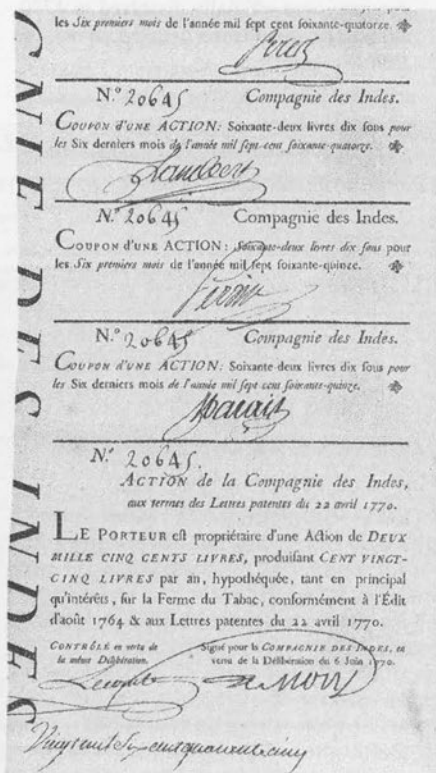 les Six premiers mois de l'année mil sept cent soixante-quatorze.
N.º 20645 Compagnie des Indes.
COUPON d'UNE ACTION: Soixante-deux livres dix sous pour
les Six derniers mois de l'année mil sept-cent soixante-quatorze.
N.º 20645 Compagnie des Indes.
COUPON d'UNE ACTION: Soixante-deux livres dix sous pour
les Six premiers mois de l'année mil sept soixante-quinze.
N.º 20645 Compagnie des Indes.
COUPON d'UNE ACTION: Soixante-deux livres dix sous pour
les Six derniers mois de l'année mil sept cent soixante-quinze.
Marais
N.º 20645.
ACTION de la Compagnie des Indes,
aux termes des Lettres patentes du 22 avril 1770.
LE PORTEUR est propriétaire d'une Action de DEUX
MILLE CINQ CENTS LIVRES, produisant CENT VINGT-
CINQ LIVRES par an, hypothéquée, tant en principal
qu'intérêts, sur la Ferme du Tabac, conformément à l'Édit
d'août 1764 & aux Lettres patentes du 22 avril 1770.
CONTRÔLÉ en vertu de
la même Délibération.
Signé pour la COMPAGNIE DES INDES, en
vertu de la Délibération du 6 Juin 1770.
Vingt mil Six cent quarante cinq
CNIE DES INDES